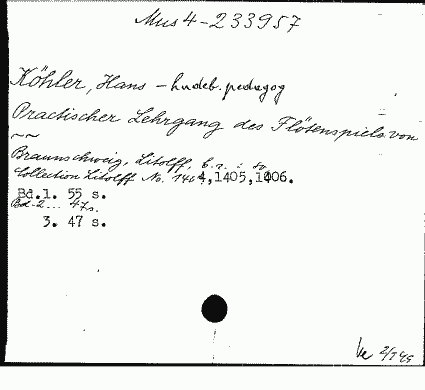 Mus 4-233957
Köhler, Hans - hudeb. pedagog
Practischer Lehrgang des Flötenspiels von
~~
Braunschweig, Litolff, b.r. : 8o
Collection Litolff No. 1404,1405,1406.
Bd.1. 55 s.
Bd.2... 47s.
3. 47 s.